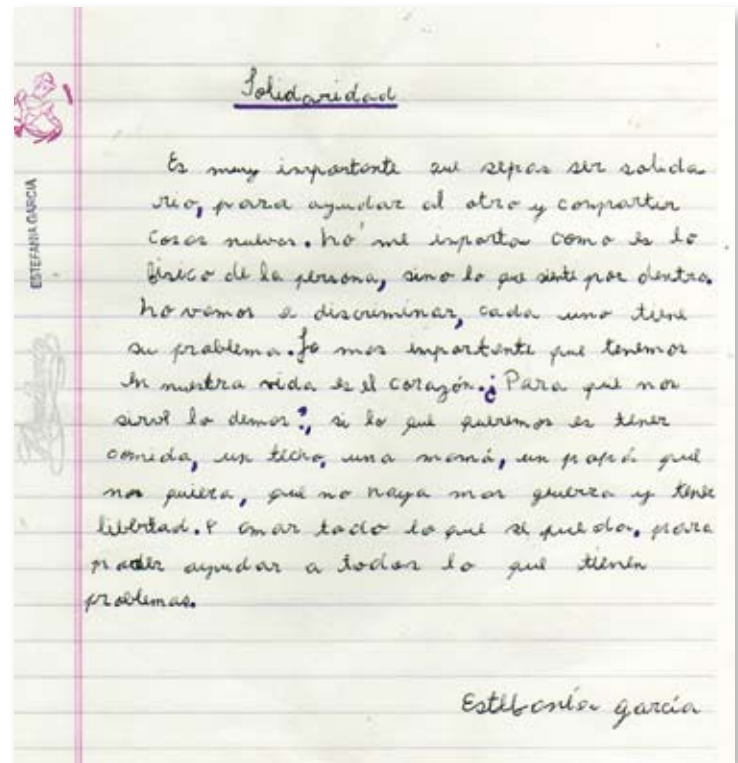 Solidaridad
ESTEFANIA GARCIA
Es muy importante que sepas ser solida
rio, para ayudar al otro y compartir
cosas nuevas. no me importa como es lo
físico de la persona, sino lo que siente por dentro.
no vamos a discriminar, cada uno tiene
su problema. Lo mas importante que tenemos
en nuestra vida es el corazón. ¿Para qué nos
sirve lo demas?, si lo que queremos es tener
comida, un techo, una mamá, un papá que
nos quiera, que no haya mas guerra y tener
libertad. Y amar todo lo que se pueda, para
poder ayudar a todos lo que tienen
problemas.
Estefanía garcía